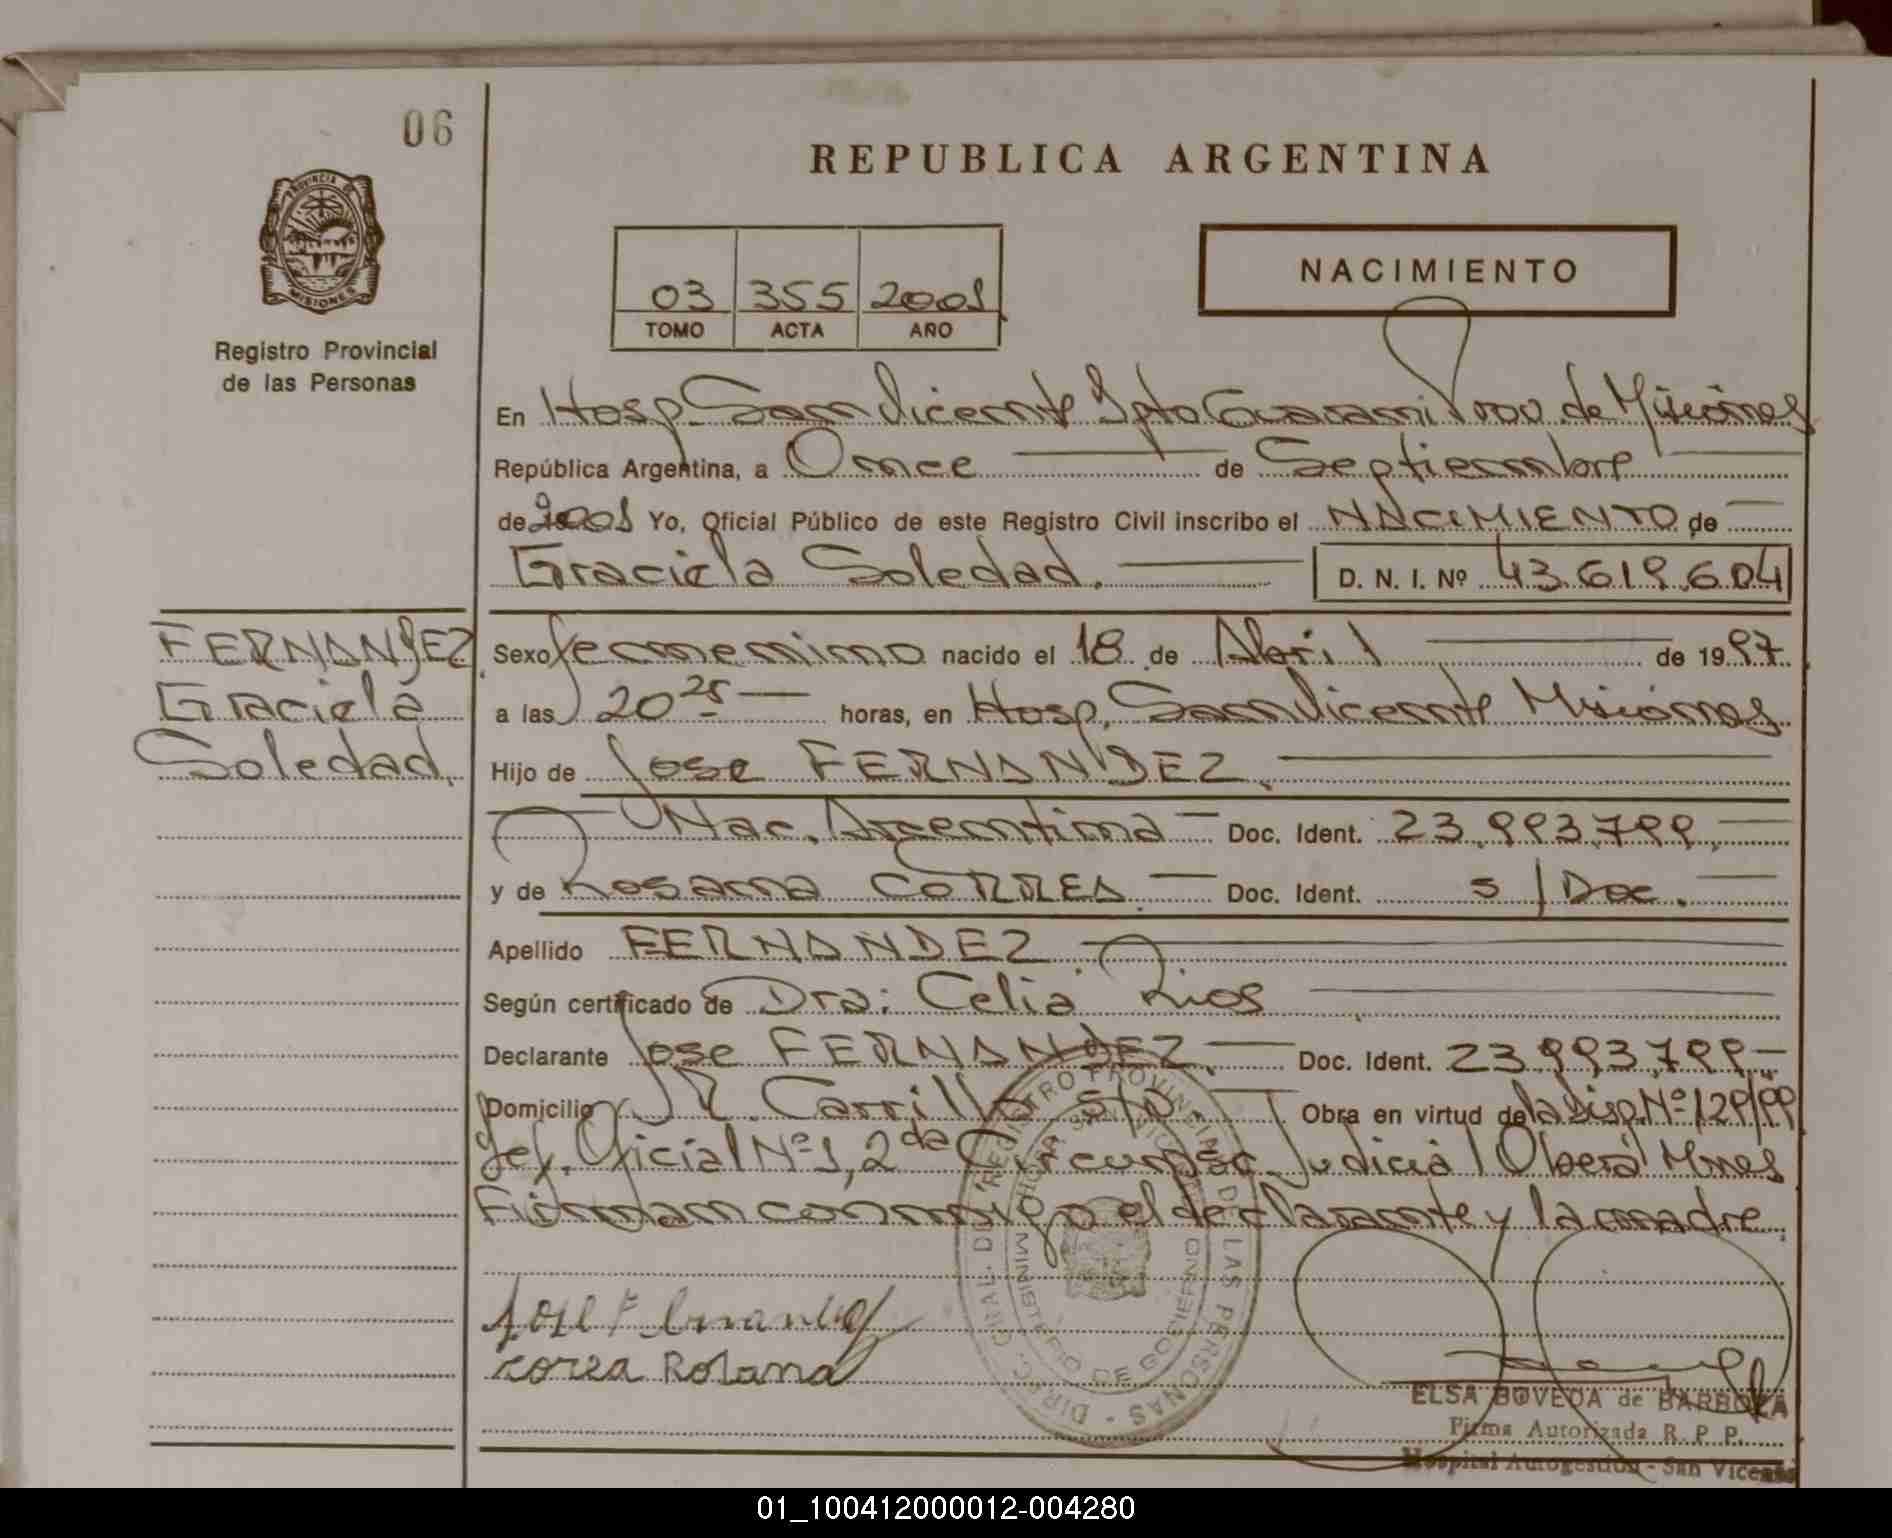 06
REPUBLICA ARGENTINA
PROVINCIA DE
MISIONES
Registro Provincial
de las Personas
03 355 2001
TOMO ACTA AÑO
NACIMIENTO
En Hosp. San Vicente Dpto Guarani Prov. de Misiones
República Argentina, a Once de Septiembre
de 2001 Yo, Oficial Público de este Registro Civil inscribo el NACIMIENTO de
Graciela Soledad. D. N. I. Nº 43.619.604
FERNANDEZ
Graciela
Soledad.
Sexo femenino nacido el 18 de Abril de 1997.
a las 20 25 horas, en Hosp. San Vicente Misiones
Hijo de Jose FERNANDEZ
Nac. Argentina Doc. Ident. 23.993.799
y de Rosana CORREA Doc. Ident. s/Doc.
Apellido FERNANDEZ
Según certificado de Dra: Celia Rios
Declarante Jose FERNANDEZ Doc. Ident. 23.993.799
Domicilio R. Carrillo S/N. Obra en virtud de la Disp. Nº 129/99
Def. Oficial Nº 1, 2da Circunsc. Judicial Oberá Mnes
Firman conmigo el declarante y la madre.
DIREC. GRAL. DEL REGISTRO PROVINCIAL DE LAS PERSONAS
MINISTERIO DE GOBIERNO
Jose Fernandez
corea Rosana
ELSA BOVEDA de BARBOZA
Firma Autorizada R. P. P.
Hospital Autogestión - San Vicente
01_100412000012-004280